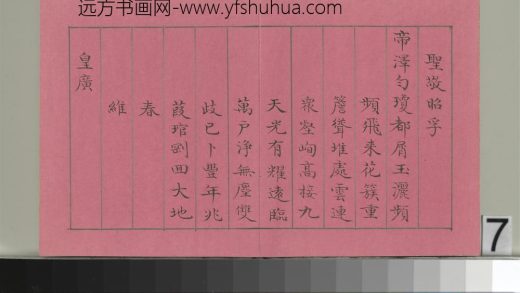 远方书画网-www.yfshuhua.com
聖敬昭孚
帝澤勻瓊都屑玉灑頻
頻飛來花簇重
簷聳堆處雲連
衆壑峋高接九
天光有耀遠臨
萬户淨無塵雙
歧已卜豐年兆
葭琯剛回大地
春
維
皇廣
7